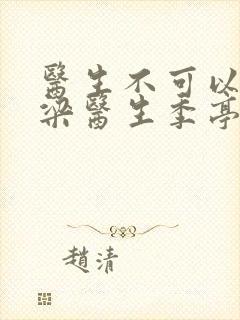 醫生不可以
梁醫生季亭
趙清